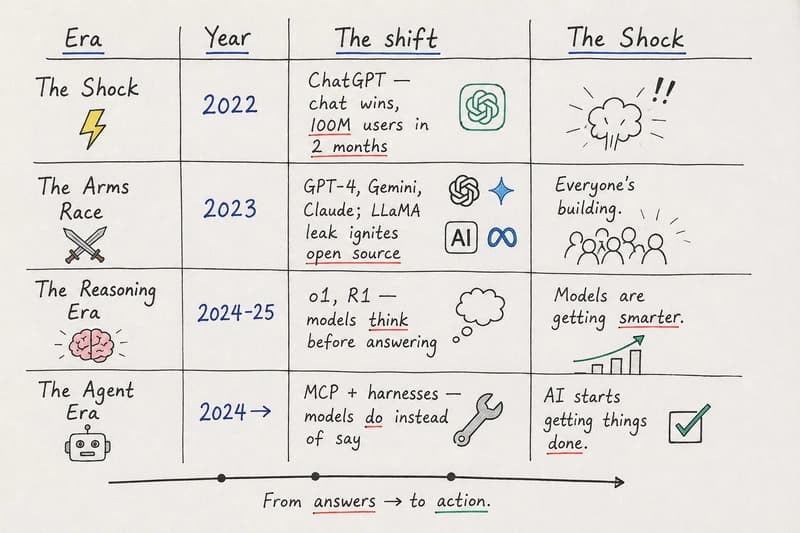 Era Year The shift The Shock
The Shock
2022
ChatGPT —
chat wins,
100M users in
2 months
!!
The Arms
Race
2023
GPT-4, Gemini,
Claude; LLaMA
leak ignites
open source
AI
Everyone's
building.
The Reasoning
Era
2024-25
o1, R1 —
models think
before answering
Models are
getting smarter.
The Agent
Era
2024→
MCP + harnesses —
models do instead
of say
AI starts
getting things
done.
From answers → to action.